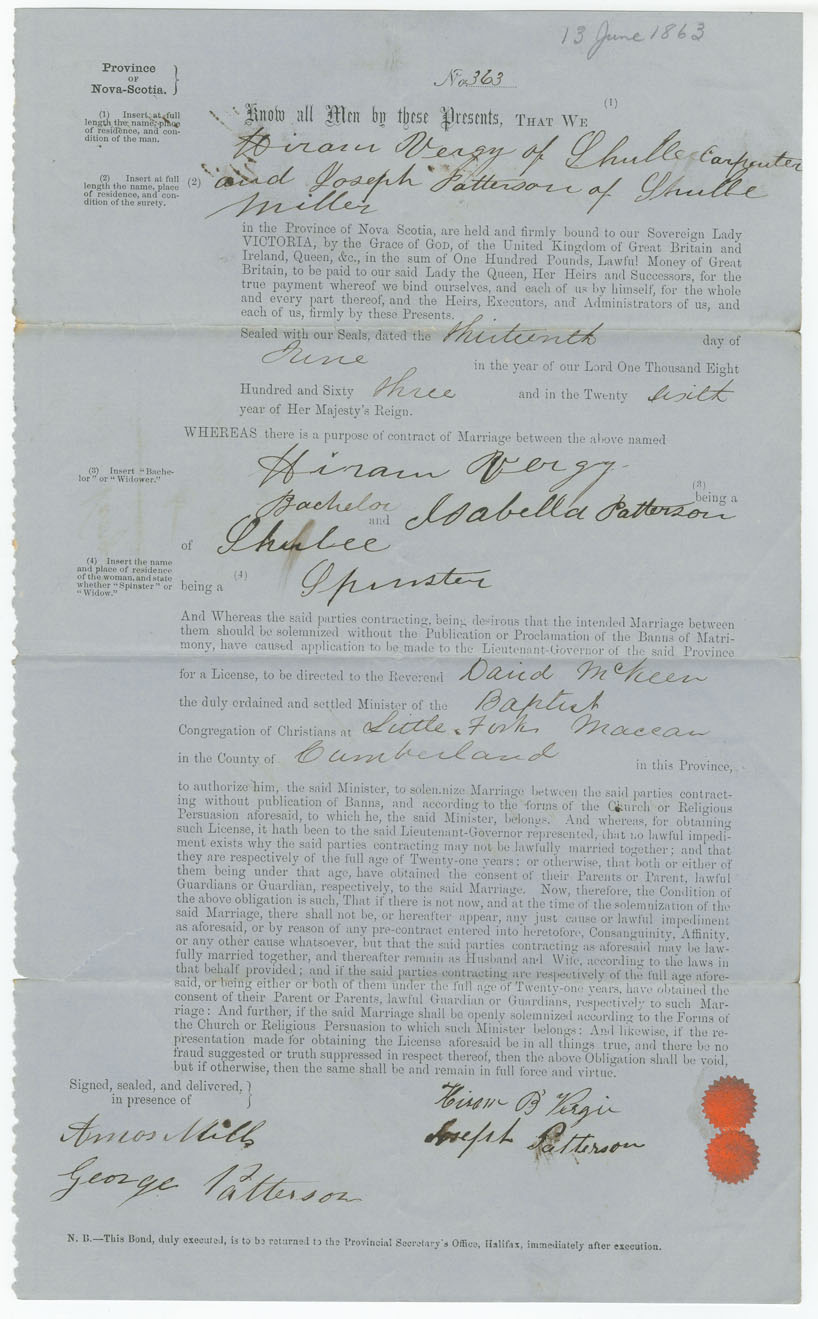 13 June 1863
Province
OF
Nova-Scotia.
No. 363
(1) Insert, at full
length the name, place
of residence, and con-
dition of the man.
Know all Men by these Presents, THAT WE (1)
Hiram Vergy of Shulle Carpenter
(2) Insert at full
length the name, place
of residence, and con-
dition of the surety.
(2) and Joseph Patterson of Shulle
Miller
in the Province of Nova Scotia, are held and firmly bound to our Sovereign Lady
VICTORIA, by the Grace of GOD, of the United Kingdom of Great Britain and
Ireland, Queen, &c., in the sum of One Hundred Pounds, Lawful Money of Great
Britain, to be paid to our said Lady the Queen, Her Heirs and Successors, for the
true payment whereof we bind ourselves, and each of us by himself, for the whole
and every part thereof, and the Heirs, Executors, and Administrators of us, and
each of us, firmly by these Presents.
Sealed with our Seals, dated the thirteenth day of
June in the year of our Lord One Thousand Eight
Hundred and Sixty three and in the Twenty sixth
year of Her Majesty's Reign.
WHEREAS there is a purpose of contract of Marriage between the above named
(3) Insert "Bache-
lor" or "Widower."
Hiram Vergy (3) being a
Bachelor and Isabella Patterson
of Shulee
(4) Insert the name
and place of residence
of the woman, and state
whether "Spinster" or
"Widow."
being a (4) Spinster
And Whereas the said parties contracting, being desirous that the intended Marriage between
them should be solemnized without the Publication or Proclamation of the Banns of Matri-
mony, have caused application to be made to the Lieutenant-Governor of the said Province
for a License, to be directed to the Reverend David McKeen
the duly ordained and settled Minister of the Baptist
Congregation of Christians at Little Forks Maccan
in the County of Cumberland in this Province,
to authorize him, the said Minister, to solemnize Marriage between the said parties contract-
ing without publication of Banns, and according to the forms of the Church or Religious
Persuasion aforesaid, to which he, the said Minister, belongs. And whereas, for obtaining
such License, it hath been to the said Lieutenant-Governor represented, that no lawful impedi-
ment exists why the said parties contracting may not be lawfully married together; and that
they are respectively of the full age of Twenty-one years; or otherwise, that both or either of
them being under that age, have obtained the consent of their Parents or Parent, lawful
Guardians or Guardian, respectively, to the said Marriage. Now, therefore, the Condition of
the above obligation is such, That if there is not now, and at the time of the solemnization of the
said Marriage, there shall not be, or hereafter appear, any just cause or lawful impediment
as aforesaid, or by reason of any pre-contract entered into heretofore, Consanguinity, Affinity,
or any other cause whatsoever, but that the said parties contracting as aforesaid may be law-
fully married together, and thereafter remain as Husband and Wife, according to the laws in
that behalf provided; and if the said parties contracting are respectively of the full age afore-
said, or being either or both of them under the full age of Twenty-one years, have obtained the
consent of their Parent or Parents, lawful Guardian or Guardians, respectively to such Mar-
riage: And further, if the said Marriage shall be openly solemnized according to the Forms of
the Church or Religious Persuasion to which such Minister belongs: And likewise, if the re-
presentation made for obtaining the License aforesaid be in all things true, and there be no
fraud suggested or truth suppressed in respect thereof, then the above Obligation shall be void,
but if otherwise, then the same shall be and remain in full force and virtue.
Signed, sealed, and delivered,
in presence of
Hiram B Vergie
Amos Mills
Joseph Patterson
George Patterson
N. B.—This Bond, duly executed, is to be returned to the Provincial Secretary's Office, Halifax, immediately after execution.